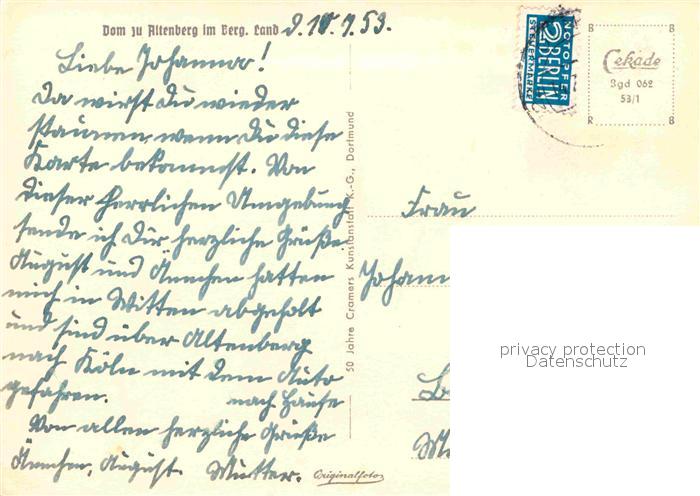 Dom zu Altenberg im Berg. Land d. 10.7.53.
Liebe Johanna!
Da wirst Du wieder
staunen, wenn Du diese
Karte bekommst. Von
dieser herrlichen Umgebung
sende ich Dir herzliche Grüße.
August und Ännchen hatten
mich in Witten abgeholt
und sind über Altenberg
nach Köln mit dem Auto
gefahren. nach Hause
Von allen herzliche Grüße
Ännchen, August. Mutter.
Originalfoto
50 Jahre Cramers Kunstanstalt K.-G., Dortmund
NOTOPFER
2 BERLIN
STEUERMARKE
B B
Cekade
Bgd 062
53/1
R B
Frau
Johann
privacy protection
Datenschutz